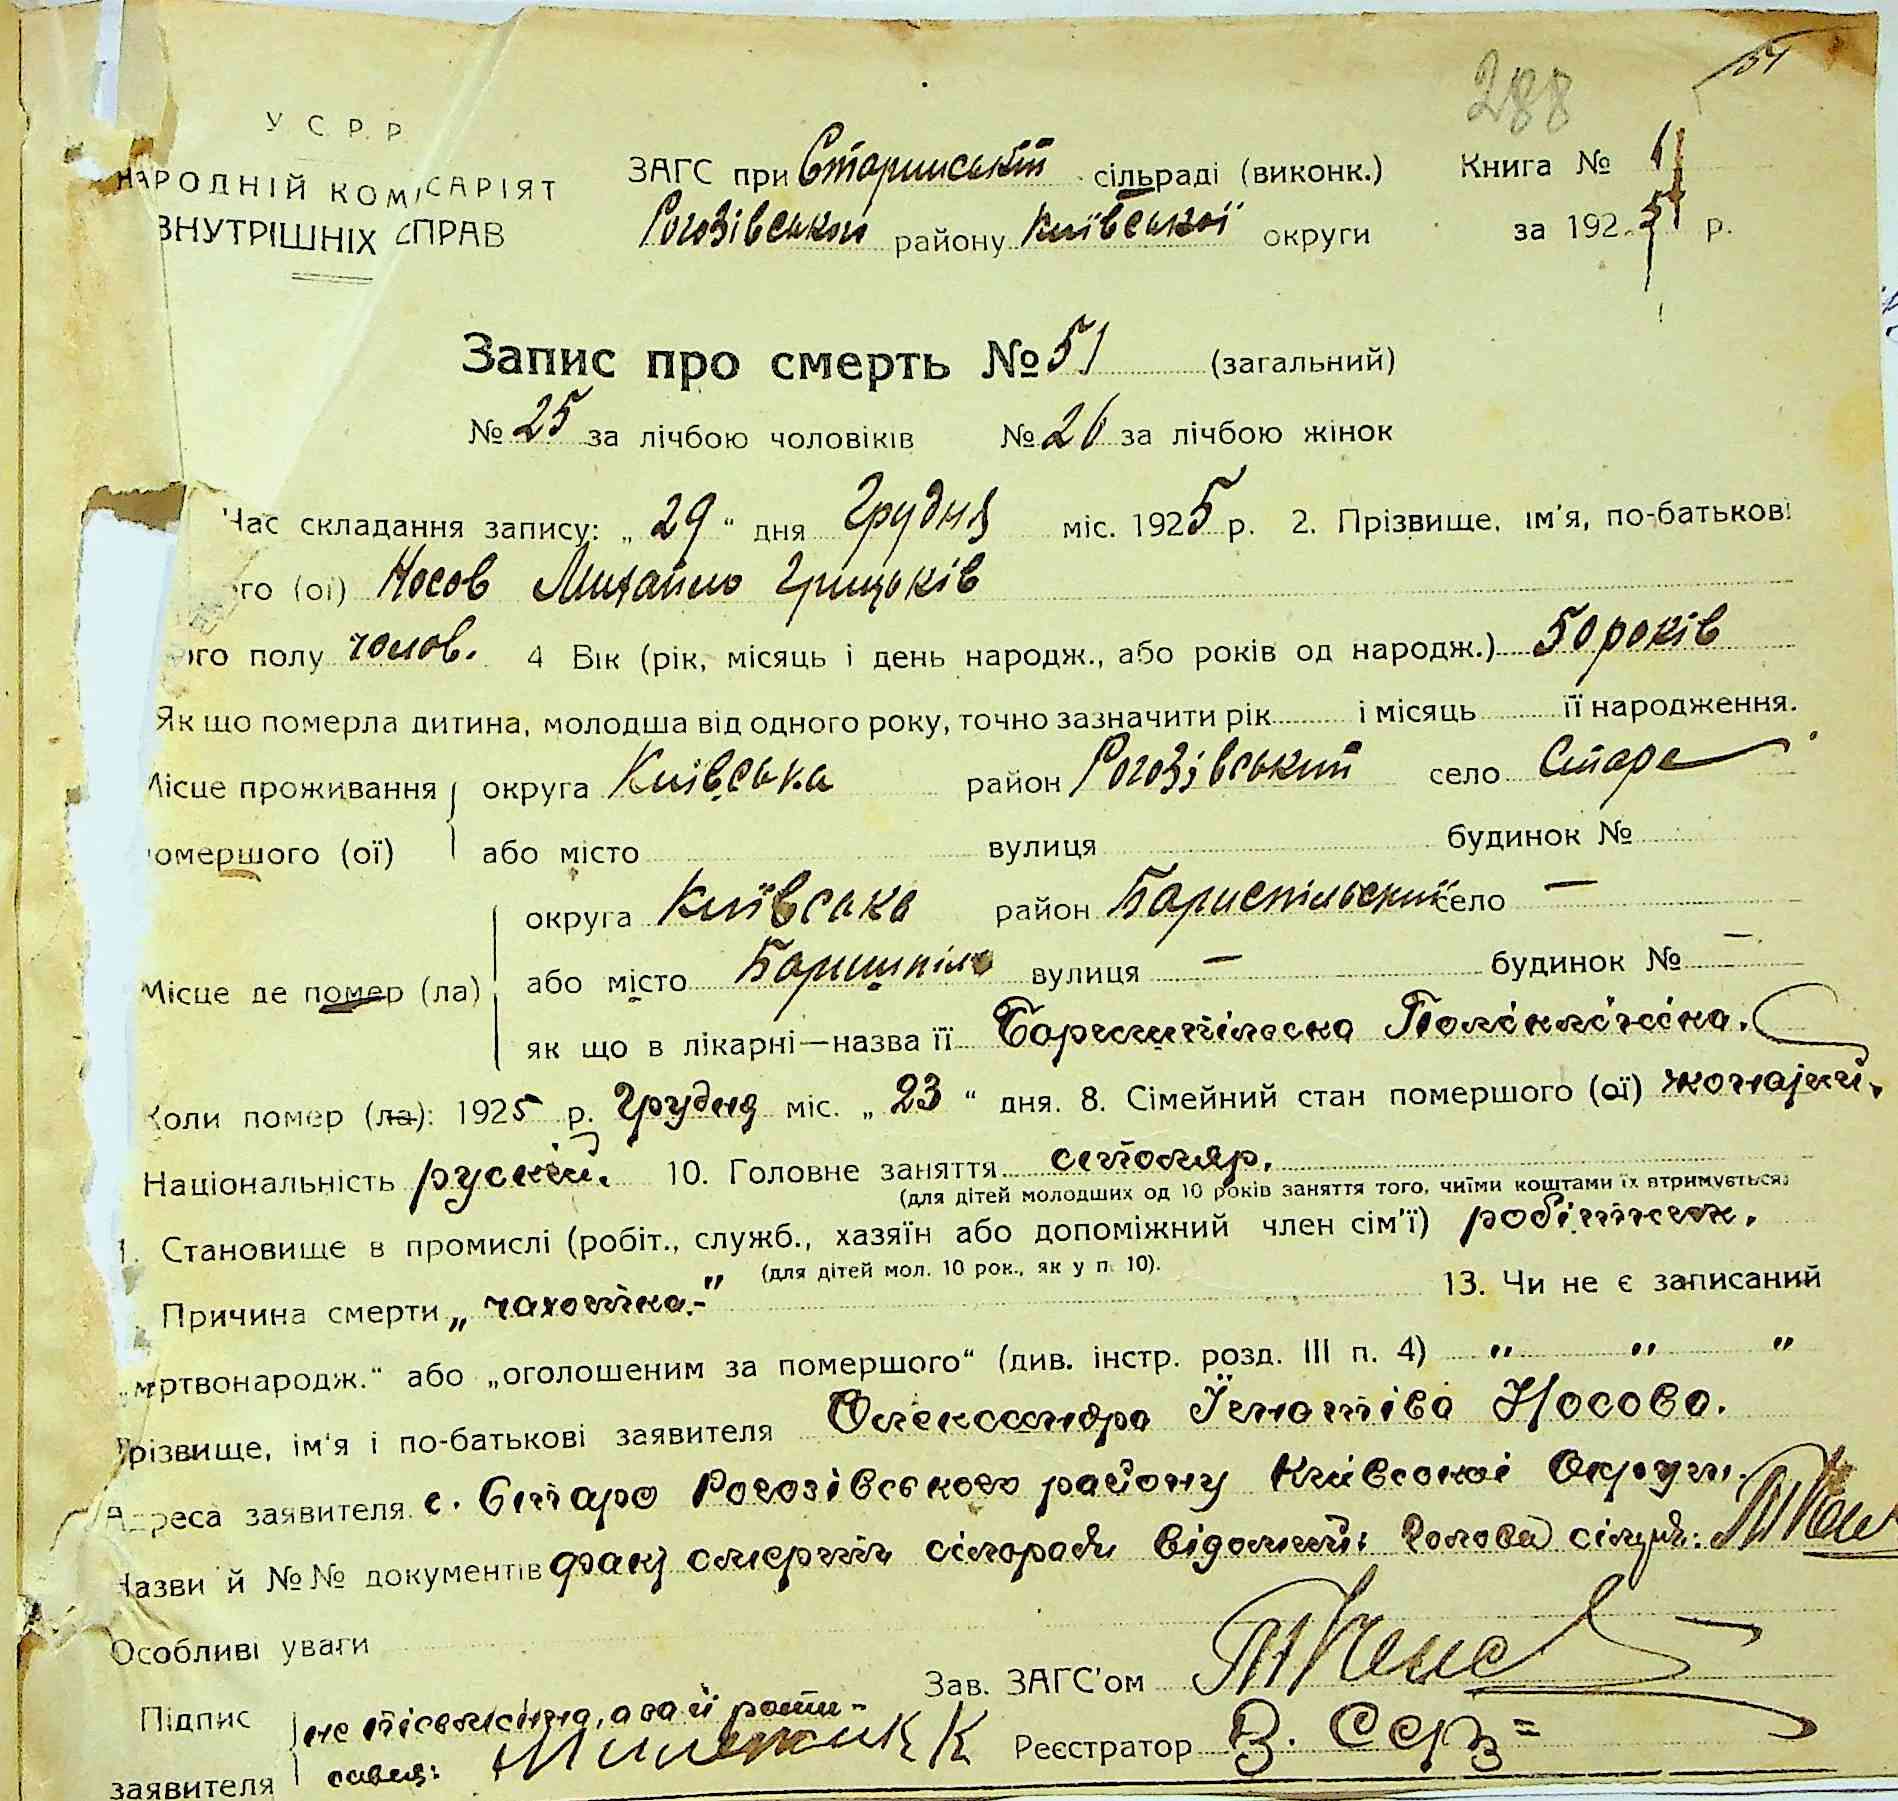 288
51
У С. Р. Р.
НАРОДНІЙ КОМІСАРІЯТ
ВНУТРІШНІХ СПРАВ
ЗАГС при Старинській сільраді (виконк.) Книга №
Рогозівського району Київської округи за 1925 р.
Запис про смерть № 51 (загальний)
№ 25 за лічбою чоловіків № 26 за лічбою жінок
Час складання запису: „ 29 “ дня Грудня міс. 1925 р. 2. Прізвище, ім'я, по-батькові
го (ої) Носов Михайло Грицьків
ого полу чолов. 4 Вік (рік, місяць і день народж., або років од народж.) 50 років
Як що померла дитина, молодша від одного року, точно зазначити рік і місяць її народження.
Місце проживання округа Київська район Рогозівський село Старе
помершого (ої) або місто вулиця будинок №
округа Київська район Бориспільский село —
Місце де помер (ла) або місто Боришпіль вулиця — будинок № —
як що в лікарні—назва її Боришпільска Поліклініка.
Коли помер (ла): 1925 р. Грудня міс. „ 23 “ дня. 8. Сімейний стан помершого (ої) жонатий.
Національність руский. 10. Головне заняття столяр.
(для дітей молодших од 10 років заняття того, чиїми коштами їх втримується)
1. Становище в промислі (робіт., служб., хазяїн або допоміжний член сім'ї) робітник.
(для дітей мол. 10 рок., як у п. 10).
Причина смерти „ чахотка.-" 13. Чи не є записаний
„мертвонародж.“ або „оголошеним за помершого“ (див. інстр. розд. III п. 4) " " "
Прізвище, ім'я і по-батькові заявителя Олександра Ігнатіва Носова.
Адреса заявителя с. Старо Рогозівського району Київської Округи.
Назви й №№ документів факт смерти сілоради відомий: Голова
Особливі уваги
Зав. ЗАГС'ом
Підпис не písьмінна, а за її
заявителя
Реєстратор В.